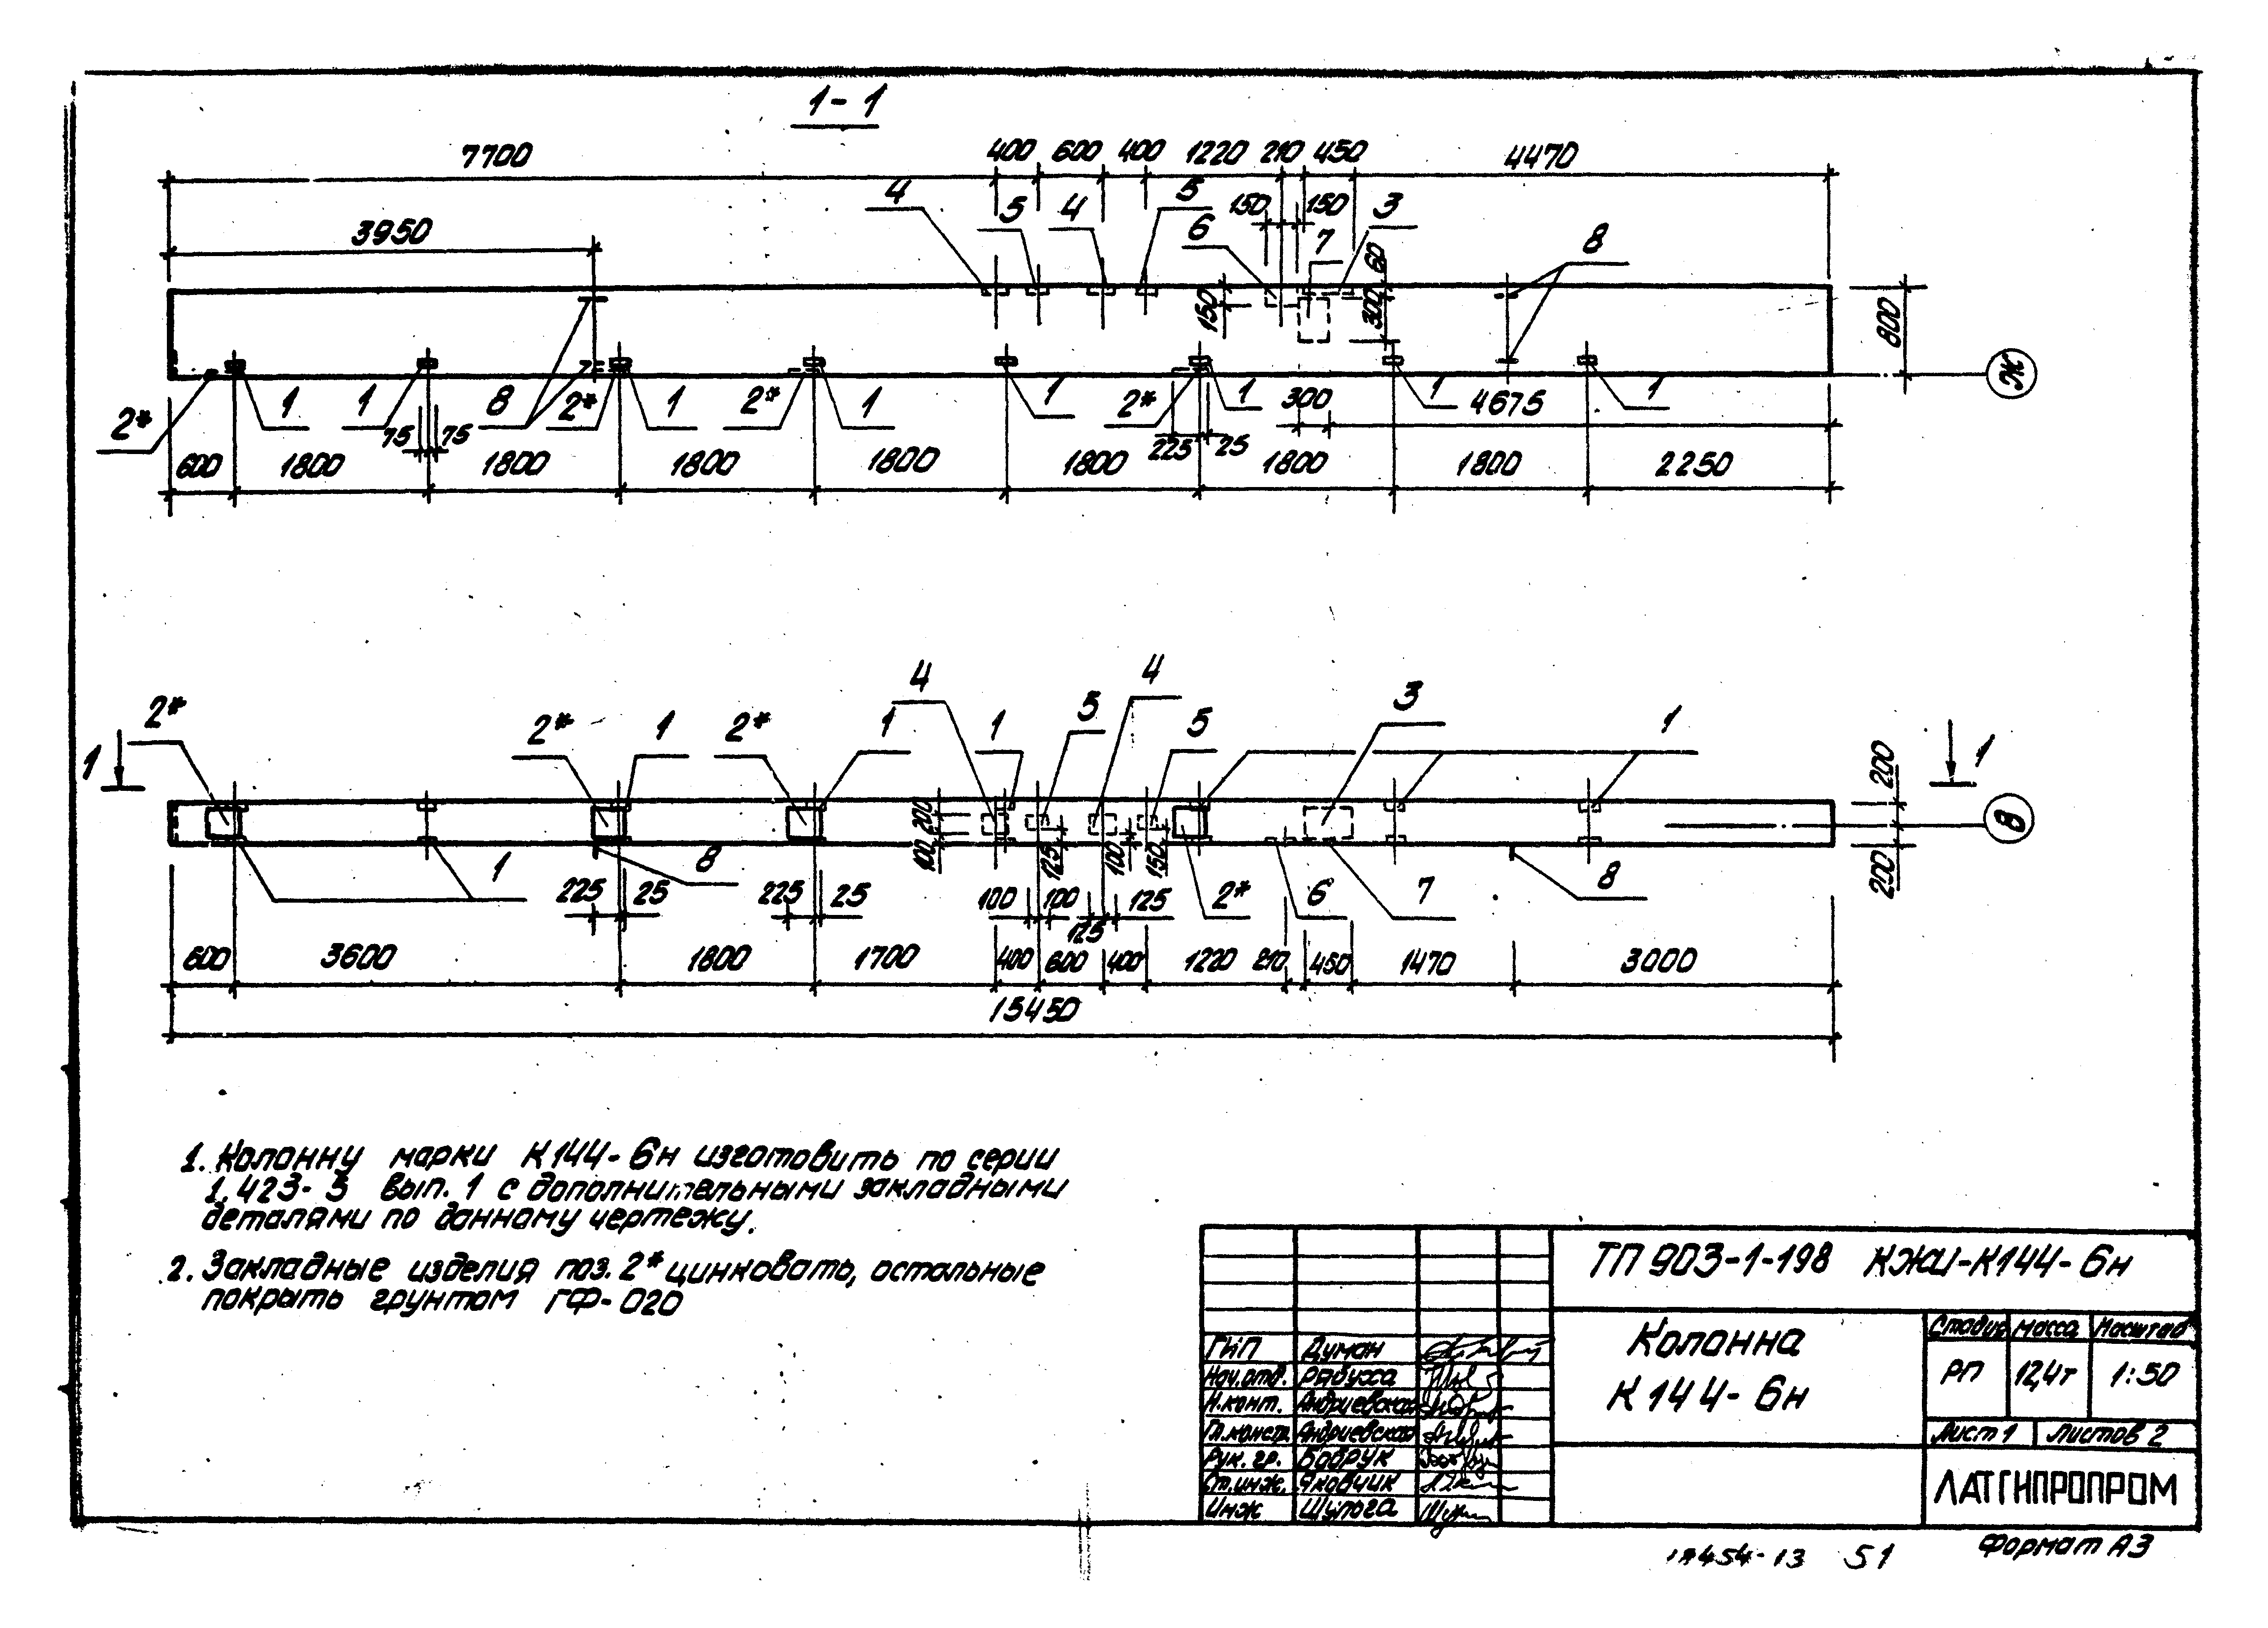 1-1
7700 400 600 400 1220 210 450 4470
4 5 4 5 150 150 3
3950 6 7 60 8
150 300 800
Ж
2* 1 1 8 2* 1 2* 1 1 2* 1 300 1 4675 1
75 75 225 25
600 1800 1800 1800 1800 1800 1800 1800 2250
4 4
2* 2* 1 2* 1 1 5 5 3 1
1 1
200
200 В
100 125 100 150
1 8 200
225 25 225 25 100 100 125 2* 6 7 8
125
600 3600 1800 1700 400 600 400 1220 210 450 1470 3000
15450
1. Колонну марки К144-6н изготовить по серии
1.423-5 вып. 1 с дополнительными закладными
деталями по данному чертежу.
2. Закладные изделия поз. 2* цинковать, остальные
покрыть грунтом ГФ-020
ТП 903-1-198 КЖИ-К144-6н
Колонна
К144-6н
Стадия Масса Масштаб
РП 12,4т 1:50
Лист 1 Листов 2
ЛАТГИПРОПРОМ
ГИП Думан
Нач.отд. Рябуха
Н.конт. Андриевская
Гл.констр. Андриевская
Рук. гр. Бобрук
Ст.инж. Яковчик
Инж Шулога
454-13 51
Формат А3